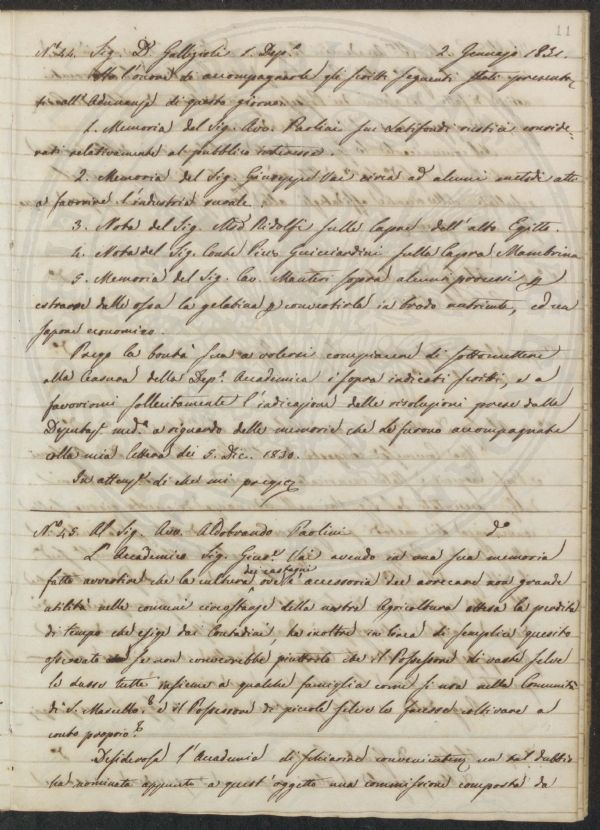 11
N.º 44. Sig. D. Gallizioli 1. Dep.º 2. Gennajo 1831.
Ho l'onore di accompagnarle gli scritti seguenti stati presenta-
ti all'Adunanza di questo giorno.
1. Memoria del Sig. Avv. Paolini sui Latifondi rustici conside-
rati relativamente al pubblico interesse.
2. Memoria del Sig. Giuseppe Vai circa ad alcuni metodi atti
a favorire l'industria rurale.
3. Nota del Sig. Ridolfi sulle Capre dell'alto Egitto.
4. Nota del Sig. Conte Guicciardini sulla Capra Mambrina
5. Memoria del Sig. Cav. Manteri sopra alcuni processi p
estrarre dalle ossa la gelatina p convertirla in brodo nutriente, ed in
sapone economico.
Prego la bontà sua a volersi compiacere di sottomettere
alla Censura della Dep.e Accademica i sopra indicati scritti, e a
favorirmi sollecitamente l'indicazione delle risoluzioni prese dalla
Deputaz.e med.a a riguardo delle memorie che Le furono accompagnate
colla mia lettera dei 5. Dic. 1830.
In attenz.e di che mi pregio
N.º 45. Al Sig. Avv. Aldobrando Paolini D.º
L'Accademico Sig. Gius.e Vai avendo in una sua memoria
fatto avvertire che la cultura dei castagni ove è accessoria dee arrecare non grande
utilità nelle comuni circostanze della nostra Agricoltura attesa la perdita
di tempo che esige dai Contadini, ha inoltre in linea di semplice quesito
osservato se non converrebbe piuttosto che il Possessore di vaste selve
le dasse tutte insieme a qualche famiglia come si usa nella Comunità
di S. Marcello? e il Possessore di piccole selve le facesse coltivare a
conto proprio?
Desiderosa l'Accademia di schiarire convenientem un tal dubbio
ha nominata appunto a quest'oggetto una commissione composta da